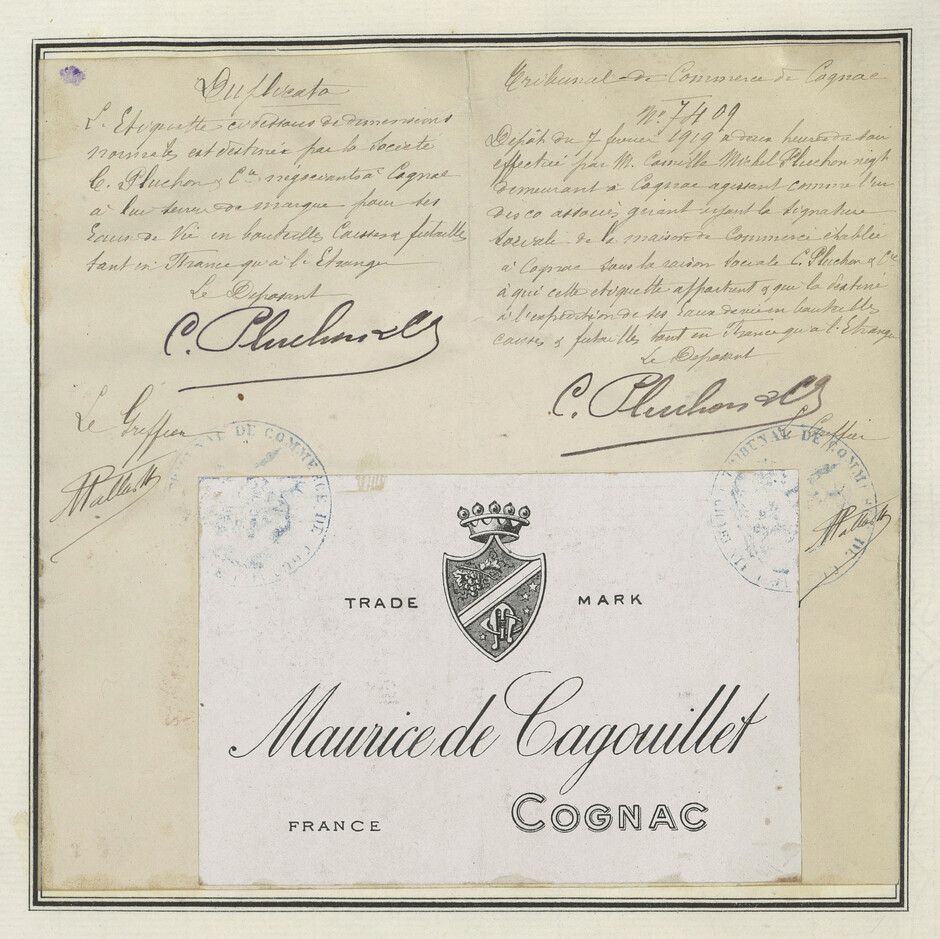 Duplicata
L'Etiquette ci dessous de dimensions
normales est destinée par la Société
C. Pluchon & Cie négociants à Cognac
à lui servir de marque pour ses
Eaux de Vie en bouteilles Caisses & futailles
tant en France qu'à l'Etranger
Le Deposant
C. Pluchon & Co
Le Greffier
Tribunal de Commerce de Cognac
No 7409
Dépôt du 7 fevrier 1919 à deux heures du soir
effectué par M. Camille Michel Pluchon négt
demeurant à Cognac agissant comme l'un
des co associés gérant ayant la signature
sociale de la maison de Commerce établie
à Cognac sous la raison sociale C. Pluchon & Cie
à qui cette etiquette appartient & qui la destine
à l'expedition de ses eaux de vie en bouteilles
caisses & futailles tant en France qu'à l'Etranger
Le Deposant
C. Pluchon & Co
Le Greffier
TRIBUNAL DE COMMERCE DE
TRIBUNAL DE COMM
TRADE MARK
Maurice de Cagouillet
FRANCE COGNAC